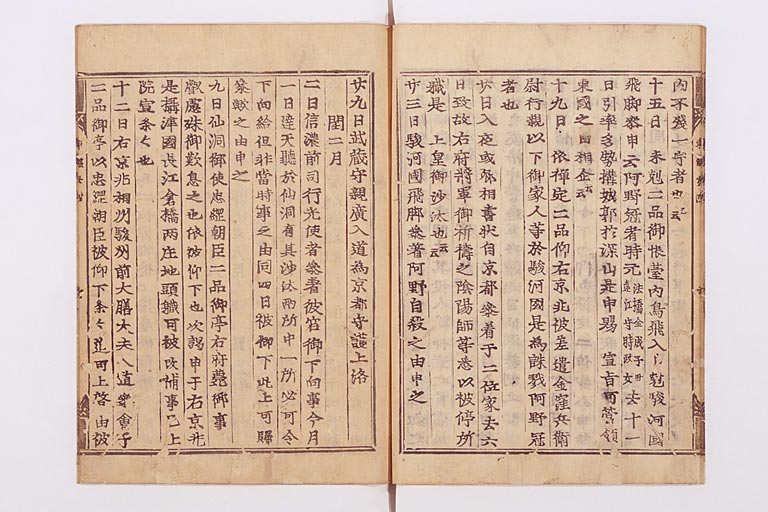 内不残一宇者也云云
十五日 未剋二品御帳臺内鳥飛入申剋駿河國
飛脚參申云阿野冠者時元 法橋全成子母遠江守時政女 去十一
日引率多勢構城郭於深山是申賜 宣旨可管領
東國之由相企云云
十九日 依禅定二品仰右京兆被差遣金窪兵衛
尉行親以下御家人等於駿河國是為誅戮阿野冠
者也
廿日入夜或 相書状自京都參着于二位家去六
日致故右府将軍御祈禱之陰陽師等悉以被停所
職是 上皇御沙汰也云云
廿三日駿河國飛脚參著阿野自殺之由申之
廿九日武蔵守親廣入道為京都守護上洛
閏二月
二日信濃前司行光使者參著彼宮御下向事今月
一日達天聴於仙洞有其沙汰両所中一所必可令
下向給但非當時事之由同四日被仰下此上可歸
參歟之由申之
九日仙洞御使忠綱朝臣二品御亭右府薨御事
叡慮殊御歎息之由依被仰下也次謁申于右京兆
是摂津國長江倉橋両庄地頭職可被改補事已上
院宣条々也
十二日右京兆相州駿州前大膳大夫入道等會于
二品御亭以忠綱朝臣被仰下条々 可上啓由被